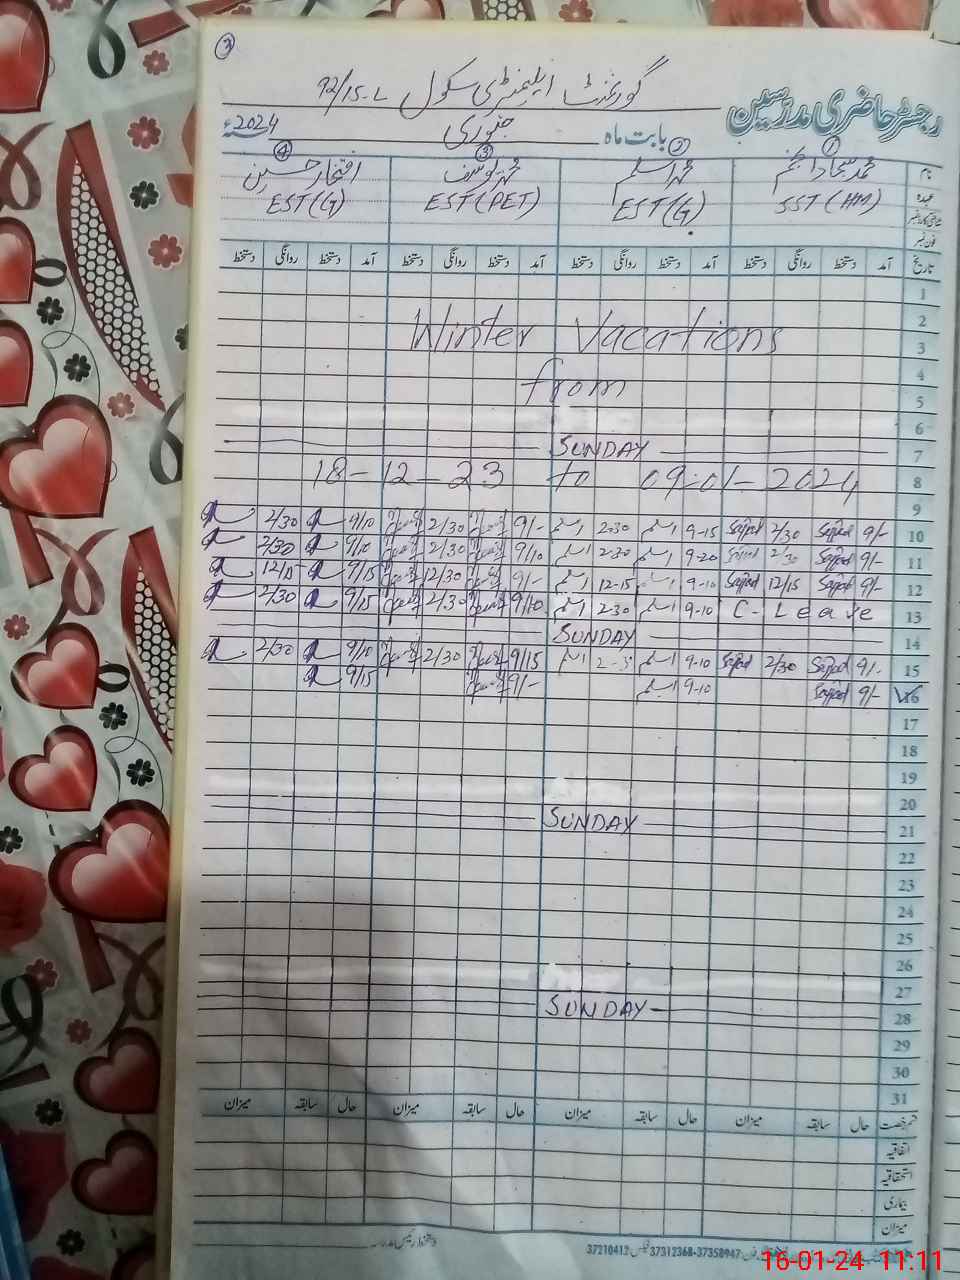 رجسٹر حاضری مدرسین
گورنمنٹ ایلیمنٹری سکول 92/15-L
بابت ماہ جنوری 2024ء
① ② ③ ④
نام محمد سجاد انجم محمد اسلم محمد یوسف افتخار حسین
عہدہ SST (HM) EST (G) EST (PET) EST (G)
فون نمبر
تاریخ آمد دستخط روانگی دستخط آمد دستخط روانگی دستخط آمد دستخط روانگی دستخط آمد دستخط روانگی دستخط
1
2
Winter Vacations
3
4
from
5
6
SUNDAY
7
18-12-23 to 09-01-2024
8
9
10 9/- Sajjad 2/30 Sajjad 9-15 اسلم 2-30 اسلم 9/- یوسف 2/30 یوسف 9/10 2/30
11 9/- Sajjad 2/30 Sajjad 9-20 اسلم 2-30 اسلم 9/10 یوسف 2/30 یوسف 9/10 2/30
12 9/- Sajjad 12/15 Sajjad 9-10 اسلم 12-15 اسلم 9/- یوسف 12/30 یوسف 9/15 12/15
13 C-Leave 9-10 اسلم 2-30 اسلم 9/10 یوسف 2/30 یوسف 9/15 2/30
14 SUNDAY
15 9/- Sajjad 2/30 Sajjad 9-10 اسلم اسلم 9/15 یوسف 2/30 یوسف 9/10 2/30
16 9/- Sajjad 9-10 اسلم 9/- یوسف 9/15
17
18
19
20
SUNDAY
21
22
23
24
25
26
27
SUNDAY
28
29
30
31
قسم رخصت حال سابقہ میزان حال سابقہ میزان حال سابقہ میزان حال سابقہ میزان
اتفاقیہ
استحقاقیہ
بیماری
میزان
دستخط رئیس مدرسہ
37210412 37312368-37358947
16-01-24 11:11